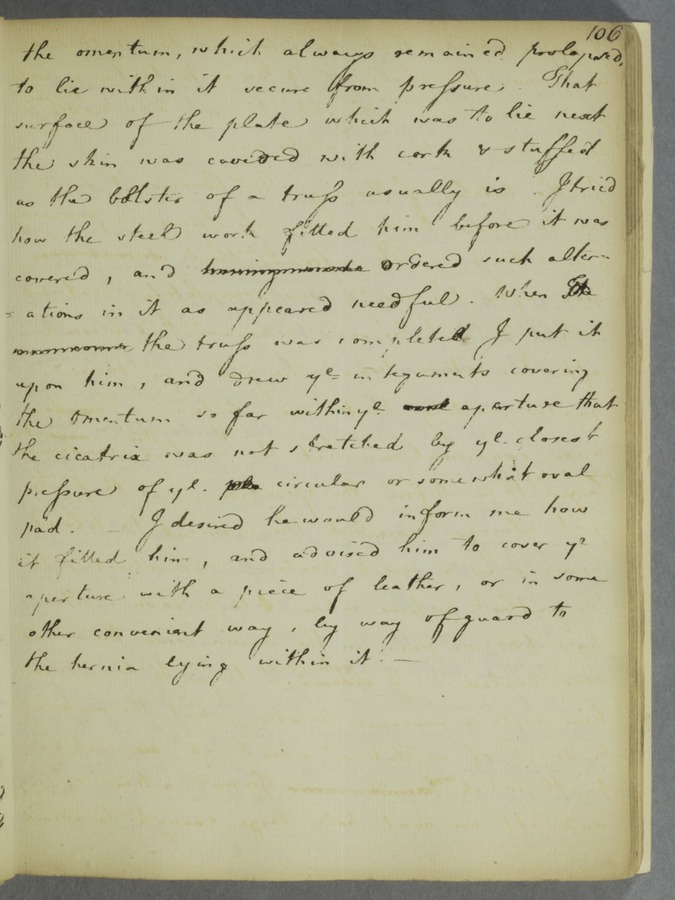 106
the omentum, which always remained prolapsed,
to lie within it secure from pressure. That
surface of the plate which was to lie next
the skin was covered with cork & stuffed
as the bolster of a truss usually is. I tried
how the steel work fitted him before it was
covered, and ordered such alter-
=ations in it as appeared needful. When
the truss was completed I put it
upon him, and drew ye integuments covering
the omentum so far within ye aperture that
the cicatrix was not stretched by ye closest
pressure of ye. circular or somewhat oval
pad. – I desired he would inform me how
it fitted him, and advised him to cover ye
aperture with a piece of leather, or in some
other convenient way, by way of guard to
the hernia lying within it. —